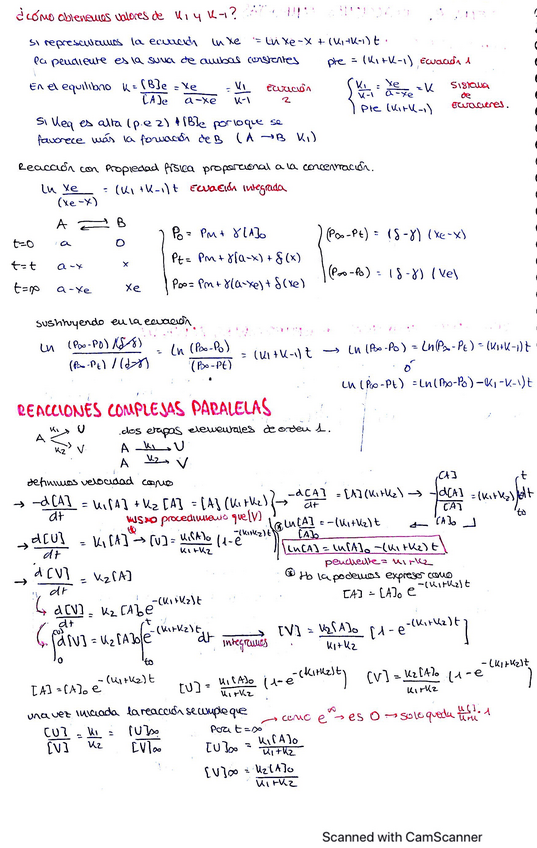 ¿cómo obtenemos valores de K₁ y K-₁?
Si representamos la ecuación ln Xe = ln Xe-X + (K₁+K-₁)t.
La pendiente es la suma de ambas constantes pte = (K₁+K-₁) Ecuación 1
En el equilibrio K = [B]e/[A]e = Xe/a-Xe = K₁/K-₁ Ecuación 2 { K₁/K-₁ = Xe/a-Xe = K Sistema de ecuaciones.
Pte (K₁+K-₁)
Si Keq es alta (p.e 2) ↑[B]e porque se
favorece más la formación de B (A → B K₁)
Reacción con Propiedad física proporcional a la concentración.
ln Xe/(Xe-X) = (K₁+K-₁)t Ecuación integrada
A ⇌ B
t=0 a 0
t=t a-x x
t=∞ a-Xe Xe
P₀ = Pm + γ[A]₀
Pt = Pm + γ(a-x) + δ(x)
P∞ = Pm + γ(a-Xe) + δ(Xe)
(P∞-Pt) = (δ-γ) (Xe-X)
(P∞-P₀) = (δ-γ) (Xe)
sustituyendo en la ecuación
ln (P∞-P₀)/(δ-γ) / (P∞-Pt)/(δ-γ) = ln (P∞-P₀)/(P∞-Pt) = (K₁+K-₁)t → ln (P∞-P₀) = ln(P∞-Pt) = (K₁+K-₁)t
ó
ln (P∞-Pt) = ln(P∞-P₀) -(K₁-K-₁)t
REACCIONES COMPLEJAS PARALELAS
A K₁ → U K₂ → V .dos etapas elementales de orden 1.
A K₁→ U
A K₂→ V
definimos velocidad como
→ -d[A]/dt = K₁[A] + K₂[A] = [A](K₁+K₂) } → -d[A]/dt = [A](K₁+K₂) → -∫[A]₀[A] d[A]/[A] = (K₁+K₂)∫t₀t dt
mismo procedimiento que [V]
→ d[U]/dt = K₁[A] → [U] = K₁[A]₀/K₁+K₂ (1-e^-(K₁+K₂)t)
ln [A]/[A]₀ = -(K₁+K₂)t
ln[A] = ln[A]₀ -(K₁+K₂)t
pendiente = K₁+K₂
→ d[V]/dt = K₂[A]
lo podemos expresar como
[A] = [A]₀ e^-(K₁+K₂)t
d[V]/dt = K₂[A]₀e^-(K₁+K₂)t
∫d[V] = K₂[A]₀∫t₀t e^-(K₁+K₂)t dt integramos → [V] = K₂[A]₀/K₁+K₂ [1-e^-(K₁+K₂)t]
[A] = [A]₀ e^-(K₁+K₂)t [U] = K₁[A]₀/K₁+K₂ (1-e^-(K₁+K₂)t) [V] = K₂[A]₀/K₁+K₂ (1-e^-(K₁+K₂)t)
una vez iniciada la reacción se cumple que
→ como e^∞ → es 0 → solo queda
[U]/[V] = K₁/K₂ = [U]∞/[V]∞
Para t=∞
[U]∞ = K₁[A]₀/K₁+K₂
[V]∞ = K₂[A]₀/K₁+K₂
Scanned with CamScanner